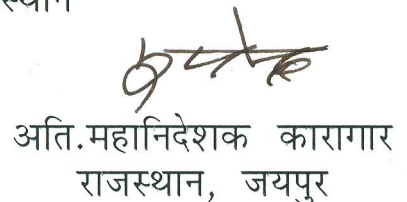 अति.महानिदेशक कारागार
राजस्थान, जयपुर